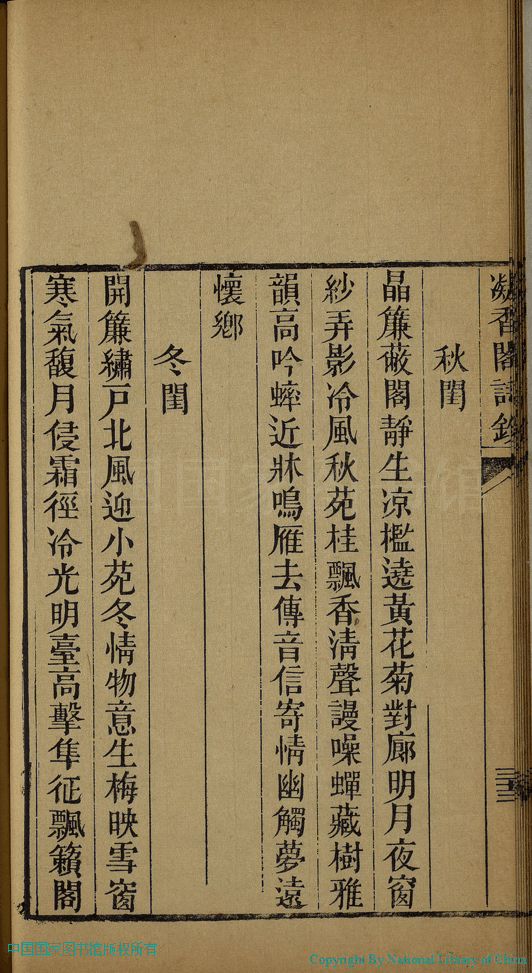 凝香閣詩鈔
秋閨
晶簾蔽閣靜生凉檻遶黃花菊對廊明月夜窗
紗弄影冷風秋苑桂飄香淸聲謾噪蟬藏樹雅
韻高吟蟀近牀鳴雁去傳音信寄情幽觸夢遠
懷鄉
冬閨
開簾繡戸北風迎小苑冬情物意生梅映雪窗
寒氣馥月侵霜徑冷光明臺高擊隼征飄籟閣
中国国家图书馆版权所有
Copyright By National Library of China